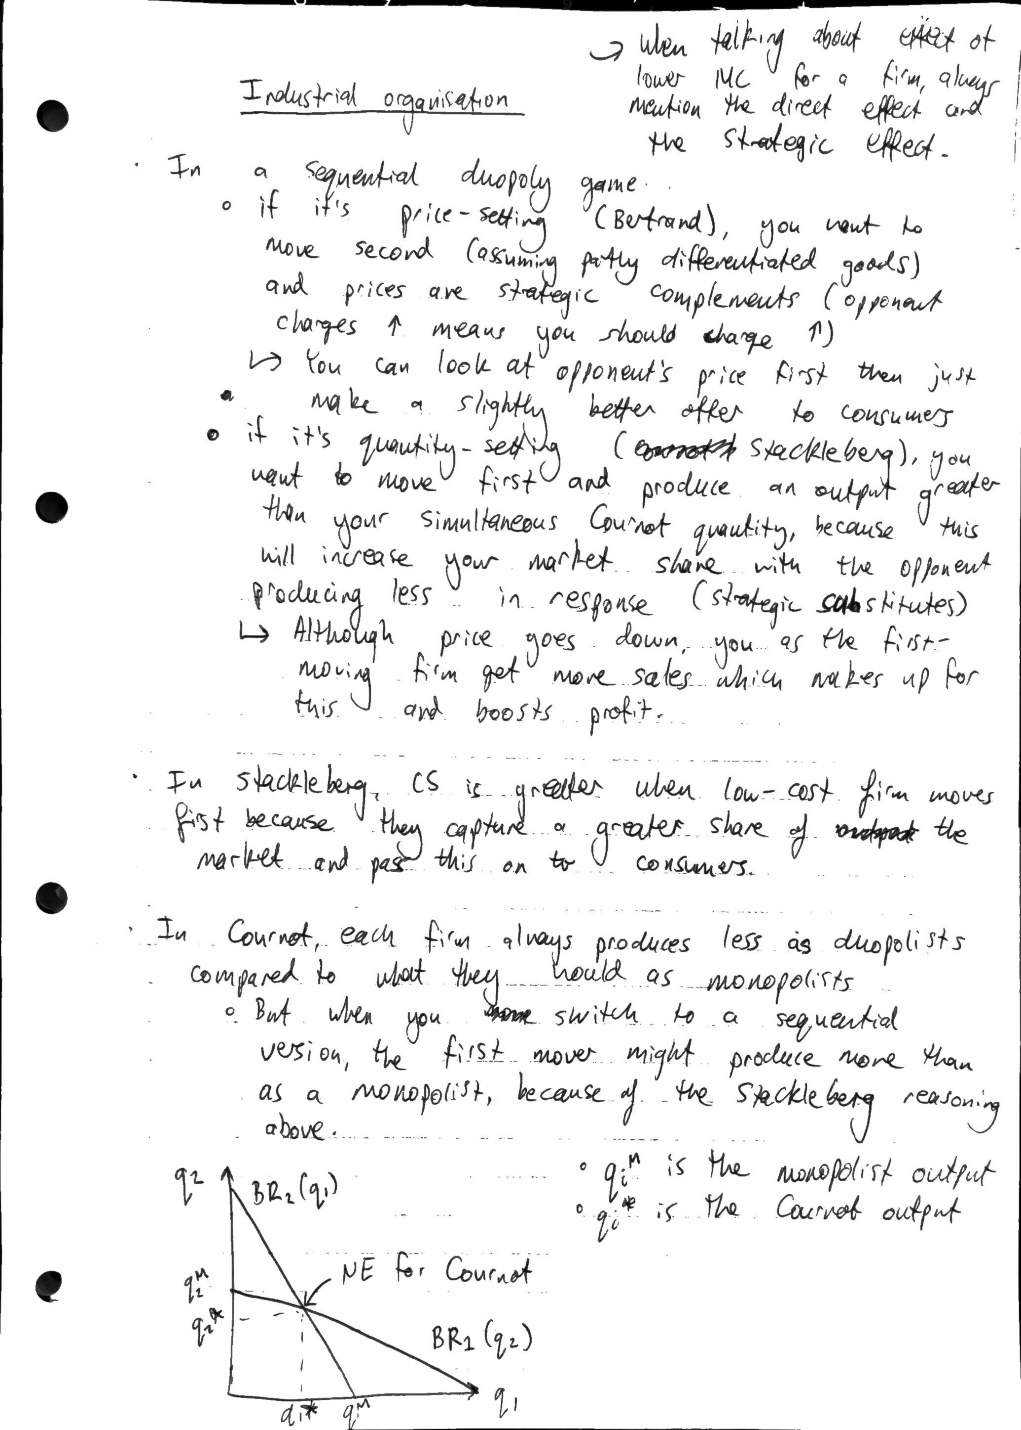 ↳ When talking about effect of
lower MC for a firm, always
mention the direct effect and
the strategic effect.
Industrial organisation
· In a sequential duopoly game..
∘ if it's price-setting (Bertrand), you want to
move second (assuming partly differentiated goods)
and prices are strategic complements (opponent
charges ↑ means you should charge ↑)
↳ You can look at opponent's price first then just
make a slightly better offer to consumers
∘ if it's quantity-setting (Stackleberg), you
want to move first and produce an output greater
than your simultaneous Cournot quantity, because this
will increase your market share with the opponent
producing less in response (strategic substitutes)
↳ Although price goes down, you as the first-
moving firm get more sales which makes up for
this and boosts profit.
· In Stackleberg, CS is greater when low-cost firm moves
first because they capture a greater share of the
market and pass this on to consumers.
· In Cournot, each firm always produces less as duopolists
compared to what they would as monopolists
∘ But when you switch to a sequential
version, the first mover might produce more than
as a monopolist, because of the Stackleberg reasoning
above.
∘ qᵢᴹ is the monopolist output
∘ qᵢ* is the Cournot output
q₂
BR₂(q₁)
NE for Cournot
q₂ᴹ
q₂*
BR₁(q₂)
q₁
q₁*
q₁ᴹ